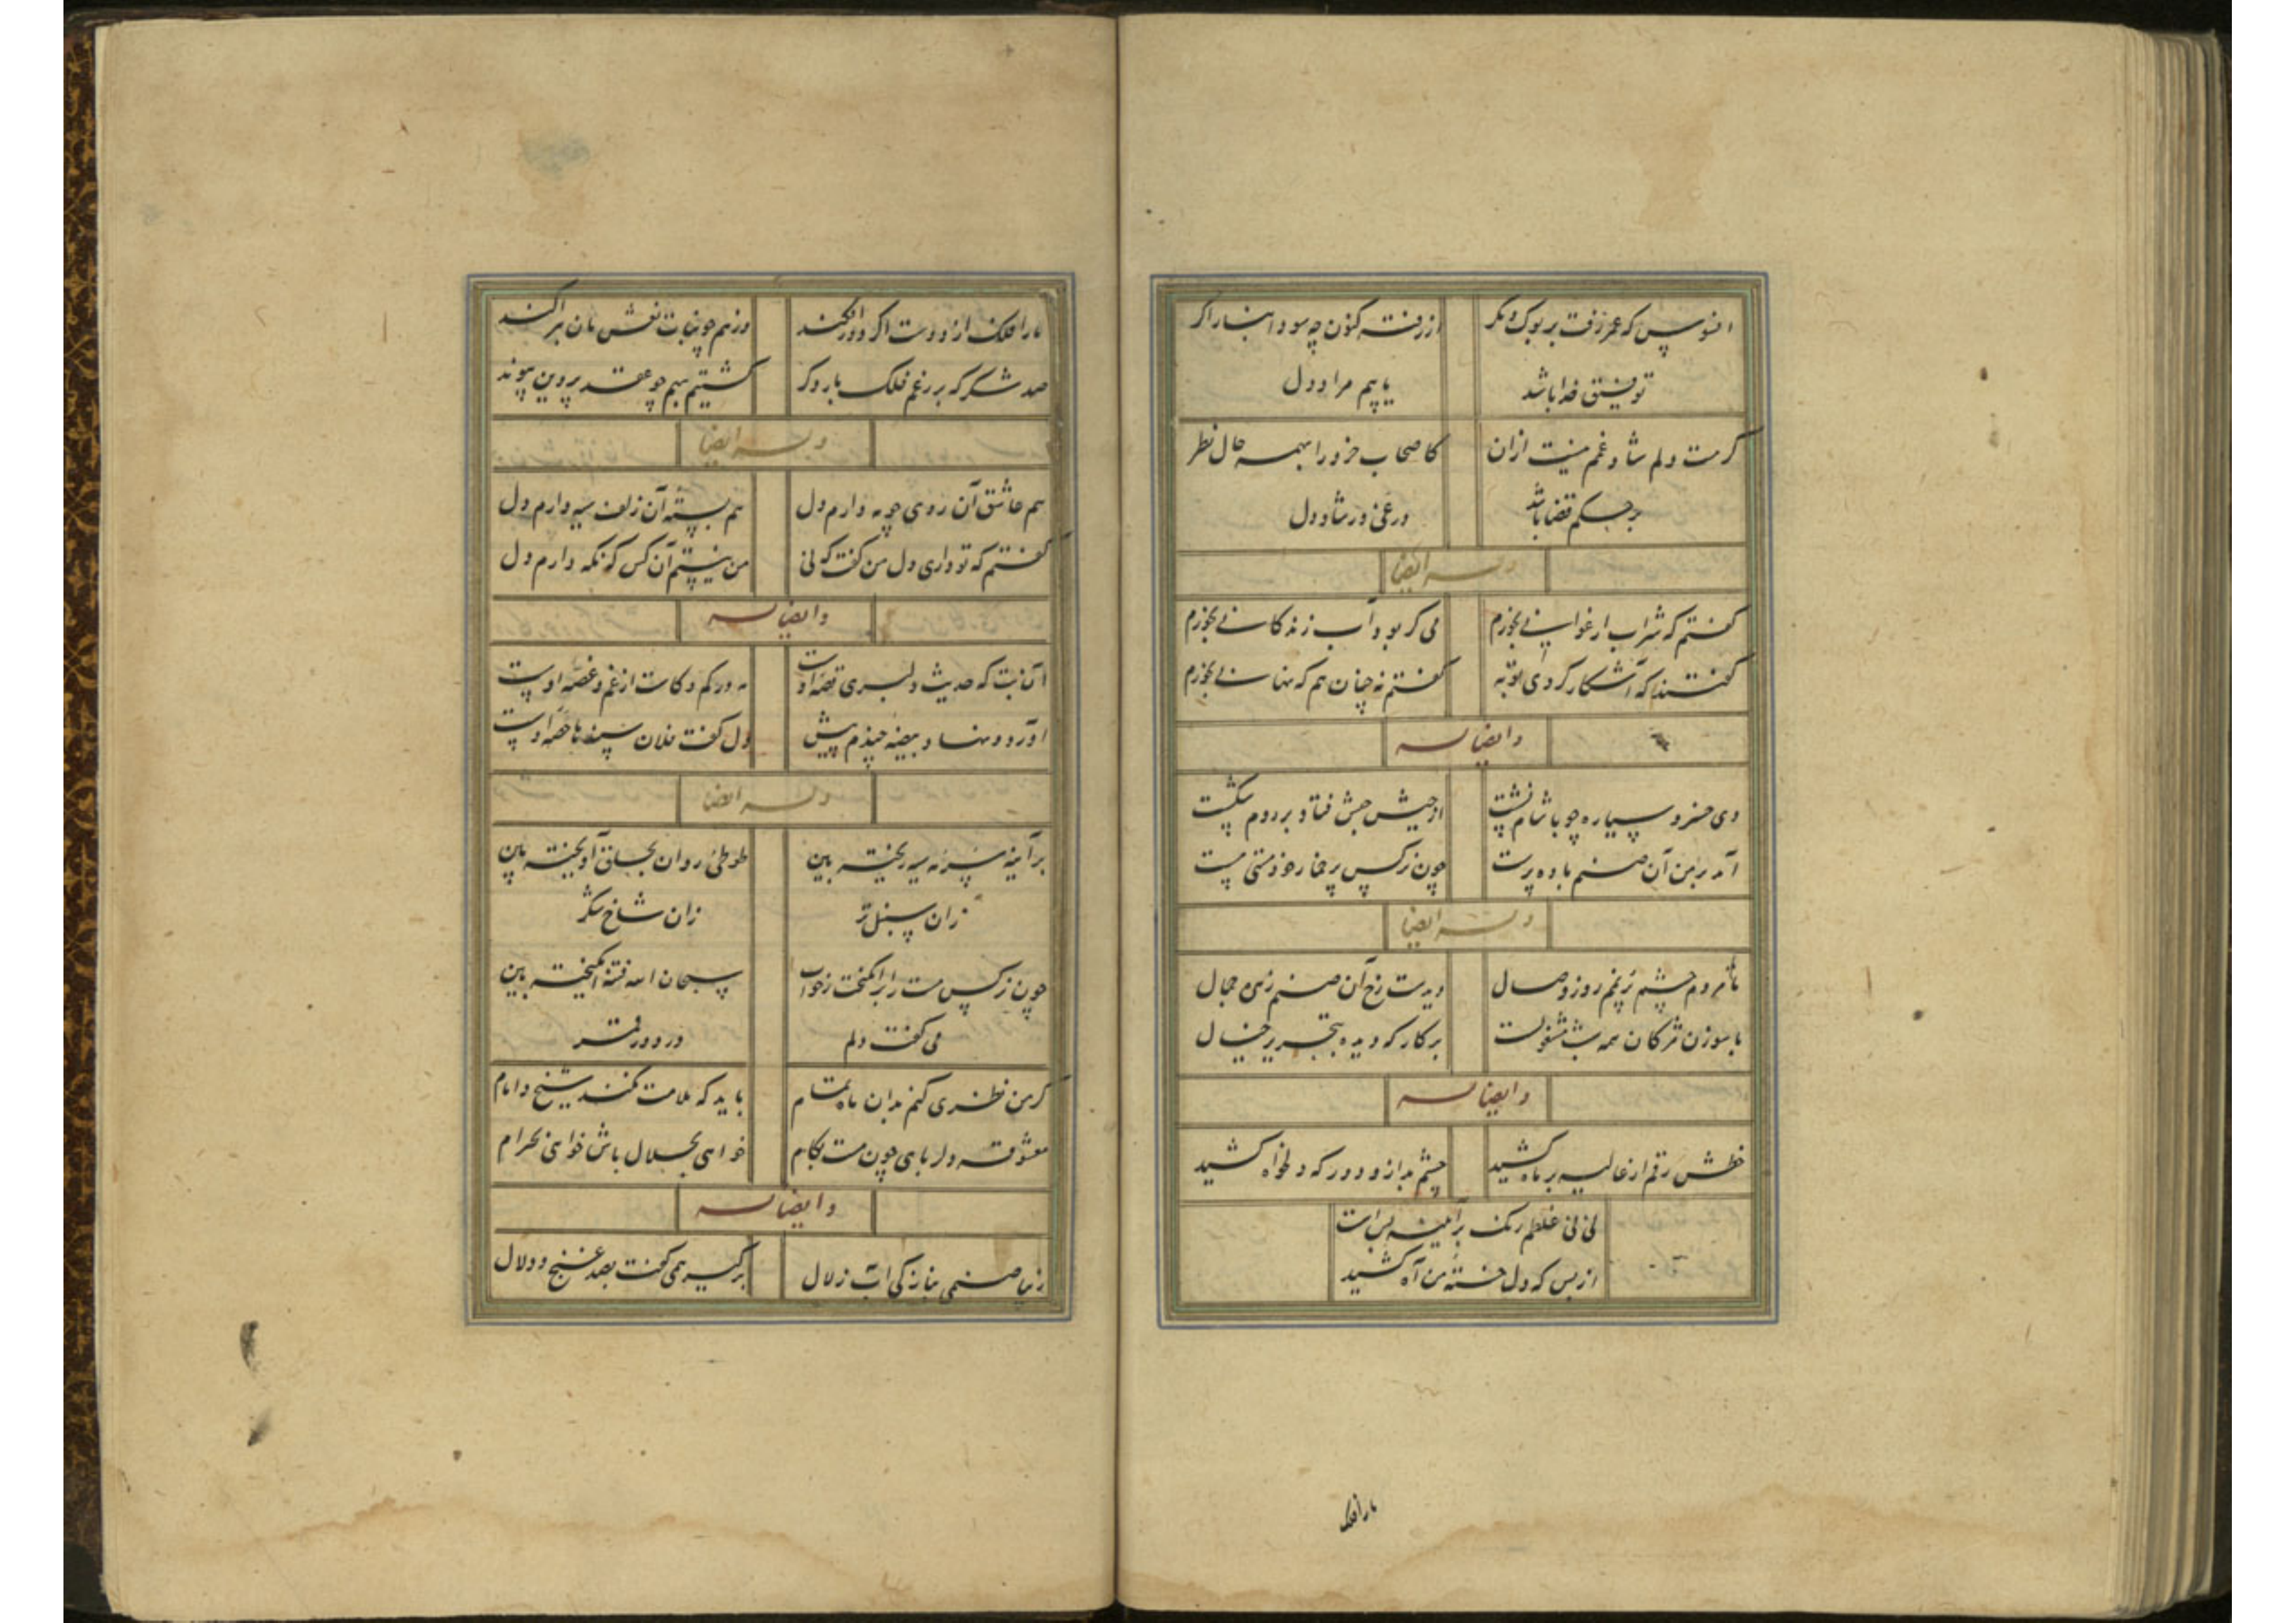 افسوس که عمر رفت بر بوک و مگر از رفته کنون چه سود
توفیق خدا باشد یابیم مراد دل
گر مست دلم شاد و غم نیست ازان کاصحاب خرد را بهمه حال نظر
بر حکم قضا باشد در غم و در شاد دل
وله ایضا
گفتم که شراب ارغوانی نخورم می گر بود آب زندگانی نخورم
گفتند که آشکار کردی توبه گفتم نه چنان هم که نهانی نخورم
وایضا له
دی خسرو سیاره چو با شام نشست از جیش حبش فتاد بر روم شکست
آمد بر من آن صنم باده پرست چون نرگس پر خمار خود مستی مست
وله ایضا
تا مردم چشم پرنم روز وصال دیدست رخ آن صنم زهره جمال
با سوزن مژکان همه شب مشغولست بر کارکه دیده بتحریر خیال
وایضا له
خطش رقم از غالیه بر ماه کشید چشم بد ازو دور که دلخواه کشید
نی نی غلطم رنگ بر آینه بست
از بس که دل خسته من آه کشید
ما را فلک
ما را فلک از دوست اگر دور افکند وز هم چو بنات نعش مان برکند
صد شکر که بر رغم فلک بار دگر گشتیم بهم چو عقد پروین پیوند
وله ایضا
هم عاشق آن روی چو مه دارم دل هم بسته آن زلف سیه دارم دل
گفتم که تو داری دل من گفت که نی من نیستم آن کس که نگه دارم دل
وایضا له
آن بت که حدیث دلبری قصه اوست مه در کم و کاست از غم و غصه اوست
آورد و نهاد بیضه چندم پیش دل گفت فلان حصه اوست
وله ایضا
بر آینه سرمه ریخته بین طوطی روان بحلق آویخته بین
زان سنبل تر زان شاخ شکر
چون نرگس مست را برانگیخت ز خواب سبحان الله فتنه انگیخته بین
می گفت دلم در دور قمر
گر من نظری کنم بدان ماه تمام باید که ملامت نکند شیخ و امام
معشوقه و دلربای چون هست بکام خواهی بحلال باش خواهی بحرام
وایضا له
زیبا صنمی بنازکی آب زلال برگیر همی گفت بصد غنج و دلال